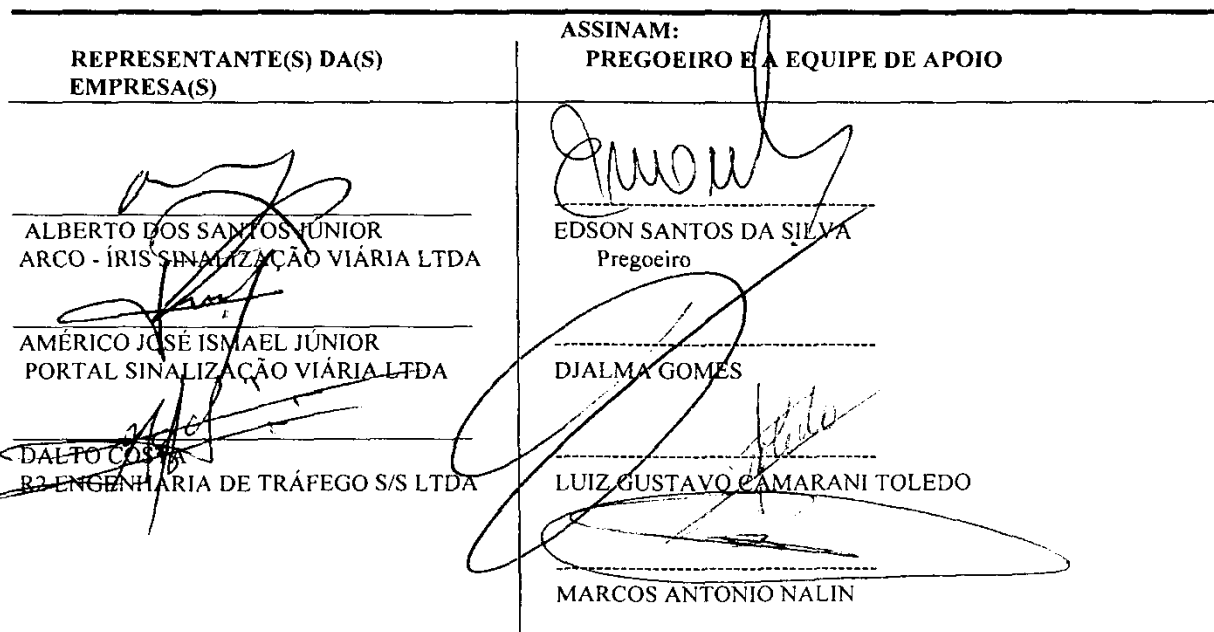 REPRESENTANTE(S) DA(S)
EMPRESA(S)
ALBERTO DOS SANTOS JÚNIOR
ARCO - ÍRIS SINALIZAÇÃO VIÁRIA LTDA
AMÉRICO JOSÉ ISMAEL JÚNIOR
PORTAL SINALIZAÇÃO VIÁRIA LTDA
DALTO COSTA
R2 ENGENHARIA DE TRÁFEGO S/S LTDA
ASSINAM:
PREGOEIRO E A EQUIPE DE APOIO
EDSON SANTOS DA SILVA
Pregoeiro
DJALMA GOMES
LUIZ GUSTAVO CAMARANI TOLEDO
MARCOS ANTONIO NALIN